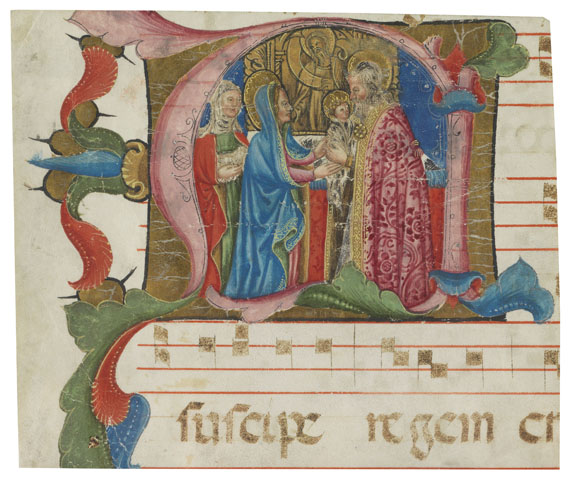 suscipe regem